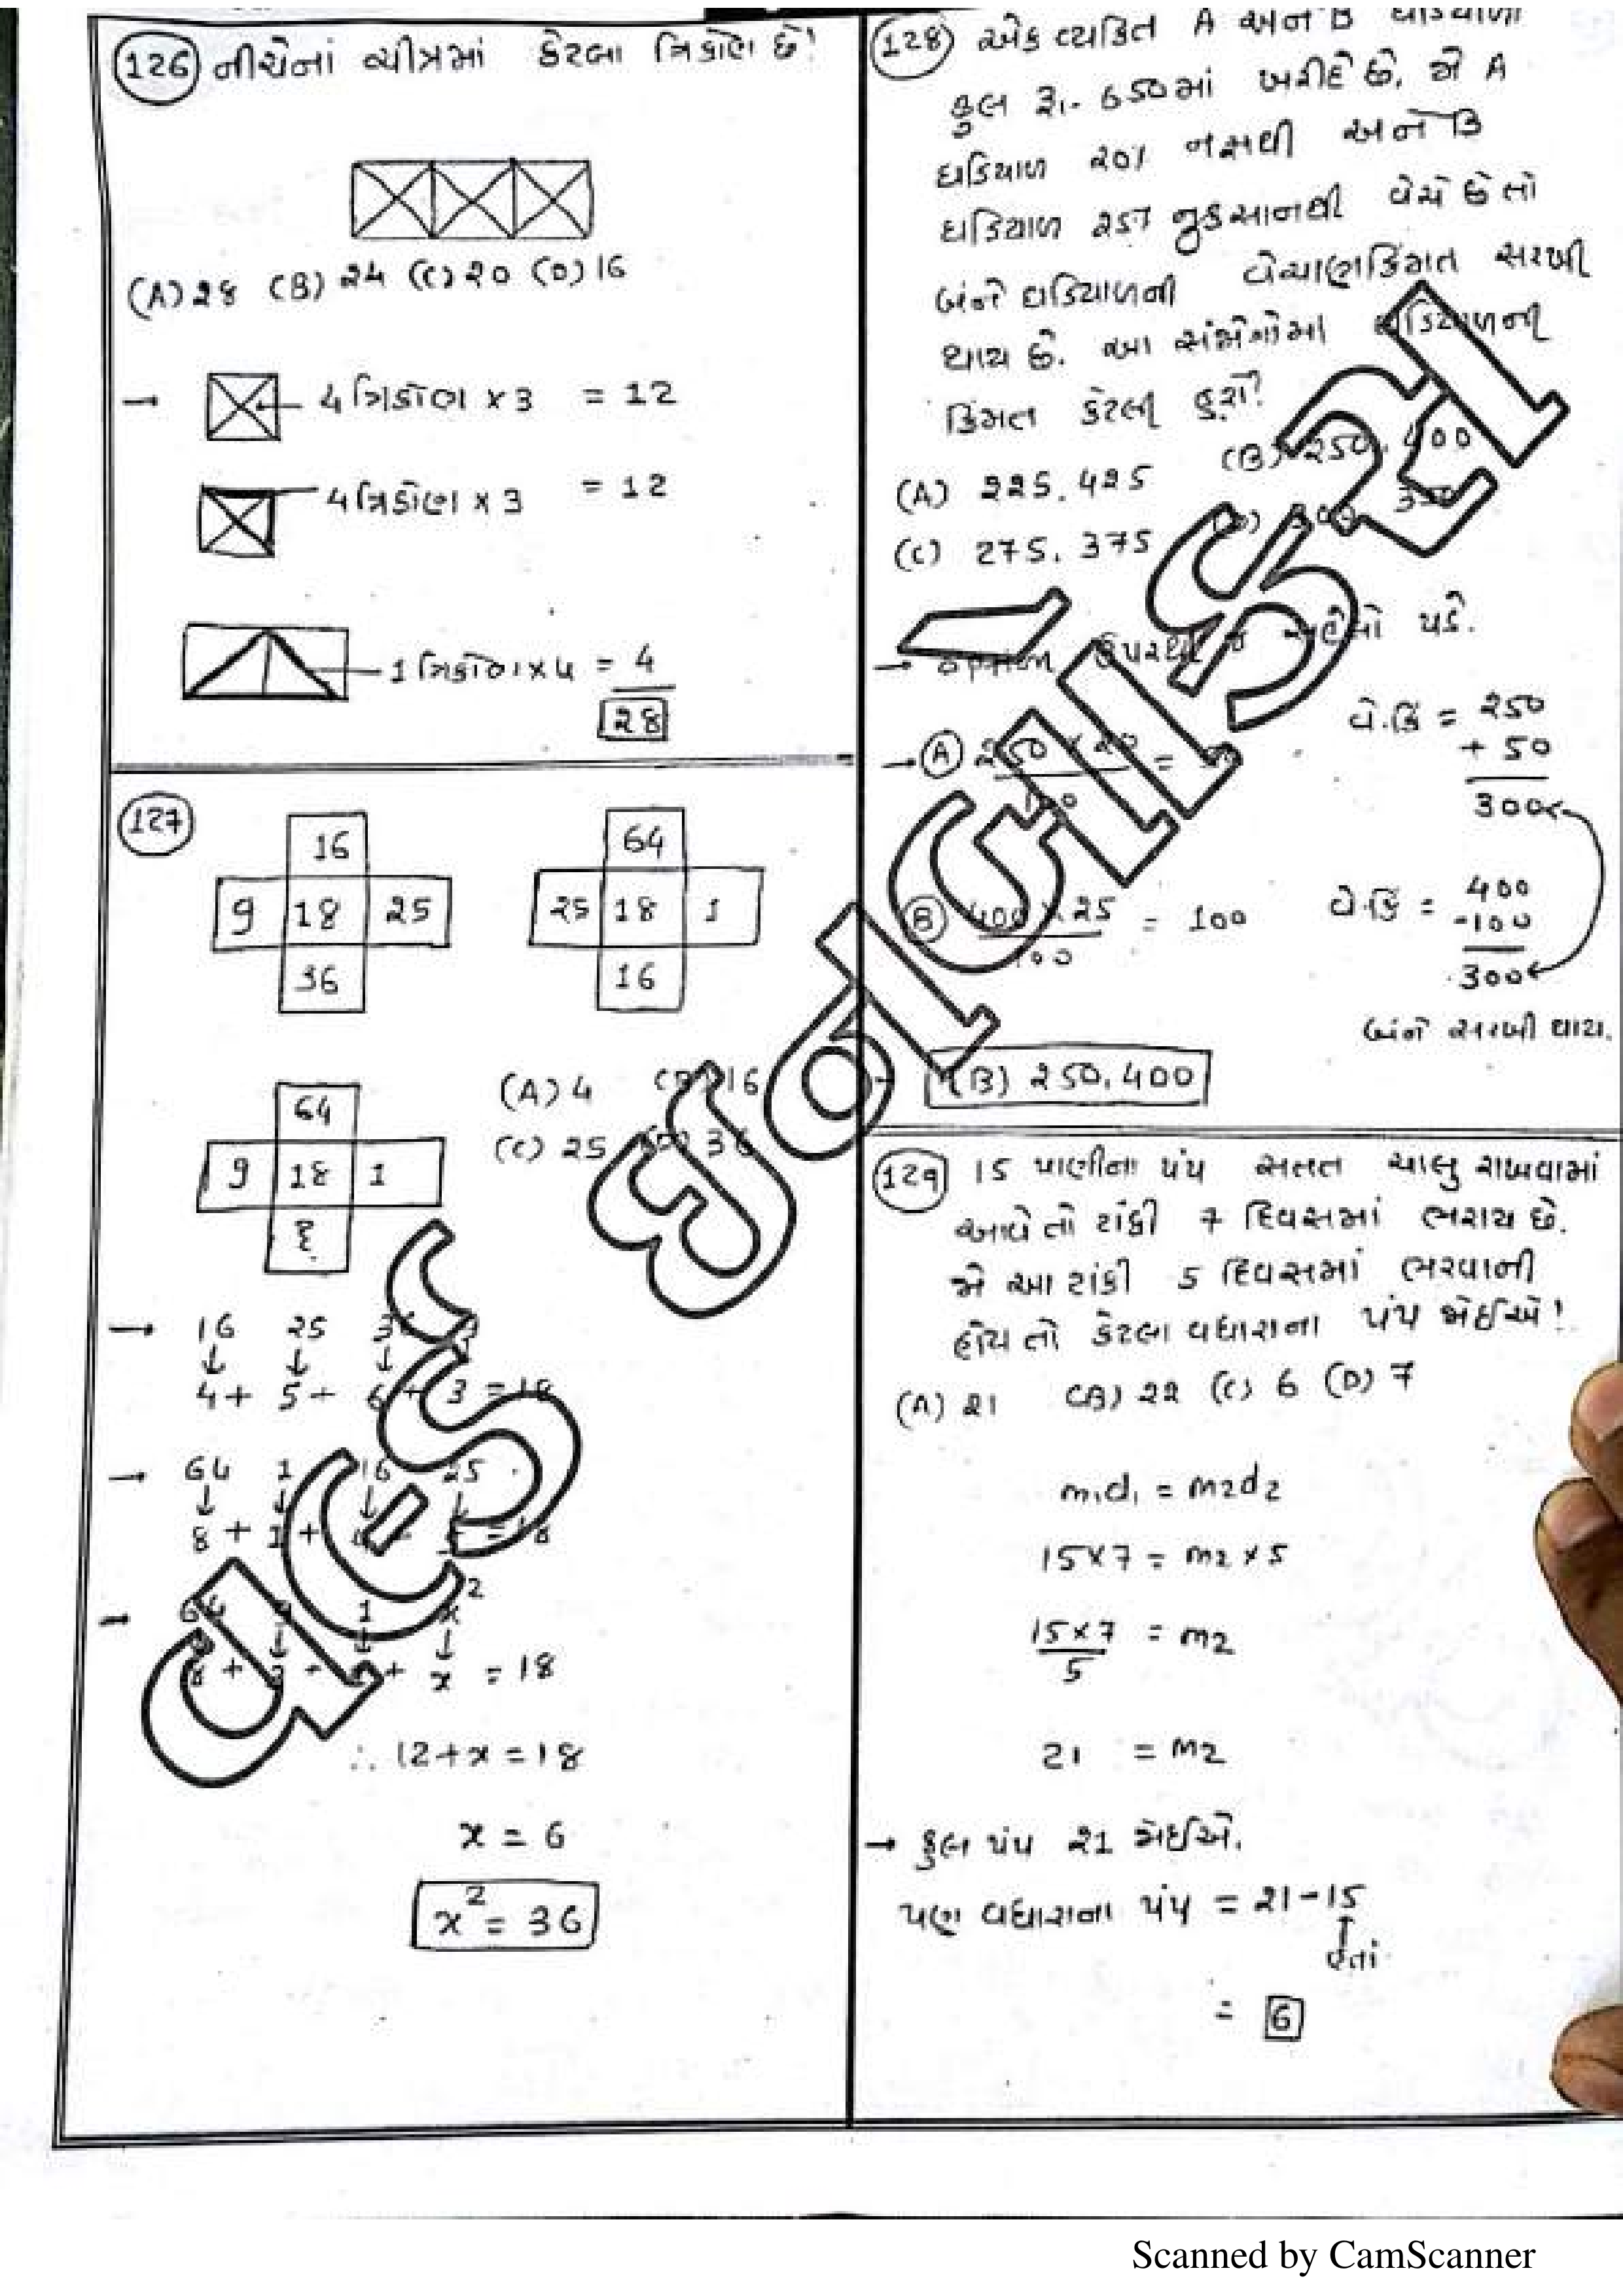 (126) નીચેનાં ચીત્રમાં કેટલા ત્રિકોણ છે?
(A) 28 (B) 24 (C) 20 (D) 16
→ 4 ત્રિકોણ x 3 = 12
4 ત્રિકોણ x 3 = 12
1 ત્રિકોણ x 4 = 4
28
(127)
16
9 18 25
36
64
25 18 1
16
64
9 18 1
?
(A) 4 (B) 16
(C) 25 (D) 36
→ 16 25 36 9
4 + 5 + 6 + 3 = 18
→ 64 1 16 25
8 + 1 + 4 + 5 = 18
→ 64 9 1 x²
8 + 3 + 1 + x = 18
∴ 12 + x = 18
x = 6
x² = 36
(128) એક વ્યકિત A અને B ઘડિયાળ
કુલ રૂા. 650માં ખરીદે છે. જો A
ઘડિયાળ 20% નફાથી અને B
ઘડિયાળ 25% નુકસાનથી વેચે છે તો
બંને ઘડિયાળની વેચાણકિંમત સરખી
થાય છે. આ સંજોગોમાં ઘડિયાળની
કિંમત કેટલી હશે?
(A) 225, 425 (B) 250, 400
(C) 275, 375 (D) 300, 350
→ ઉપરથી જ પડે.
→ (A) 250 x 20 / 100 = 50
વે.કિં = 250
+ 50
300
(B) 400 x 25 / 100 = 100
વે.કિં = 400
-100
300
બંને સરખી થાય.
(B) 250, 400
(129) 15 પાણીના પંપ સતત ચાલુ રાખવામાં
આવે તો ટાંકી 7 દિવસમાં ભરાય છે.
જો આ ટાંકી 5 દિવસમાં ભરવાની
હોય તો કેટલા વધારાના પંપ જોઈએ?
(A) 21 (B) 22 (C) 6 (D) 7
m₁d₁ = m₂d₂
15 x 7 = m₂ x 5
15 x 7 / 5 = m₂
21 = m₂
→ કુલ પંપ 21 જોઈએ.
પણ વધારાના પંપ = 21 - 15
હતાં
= 6
Scanned by CamScanner